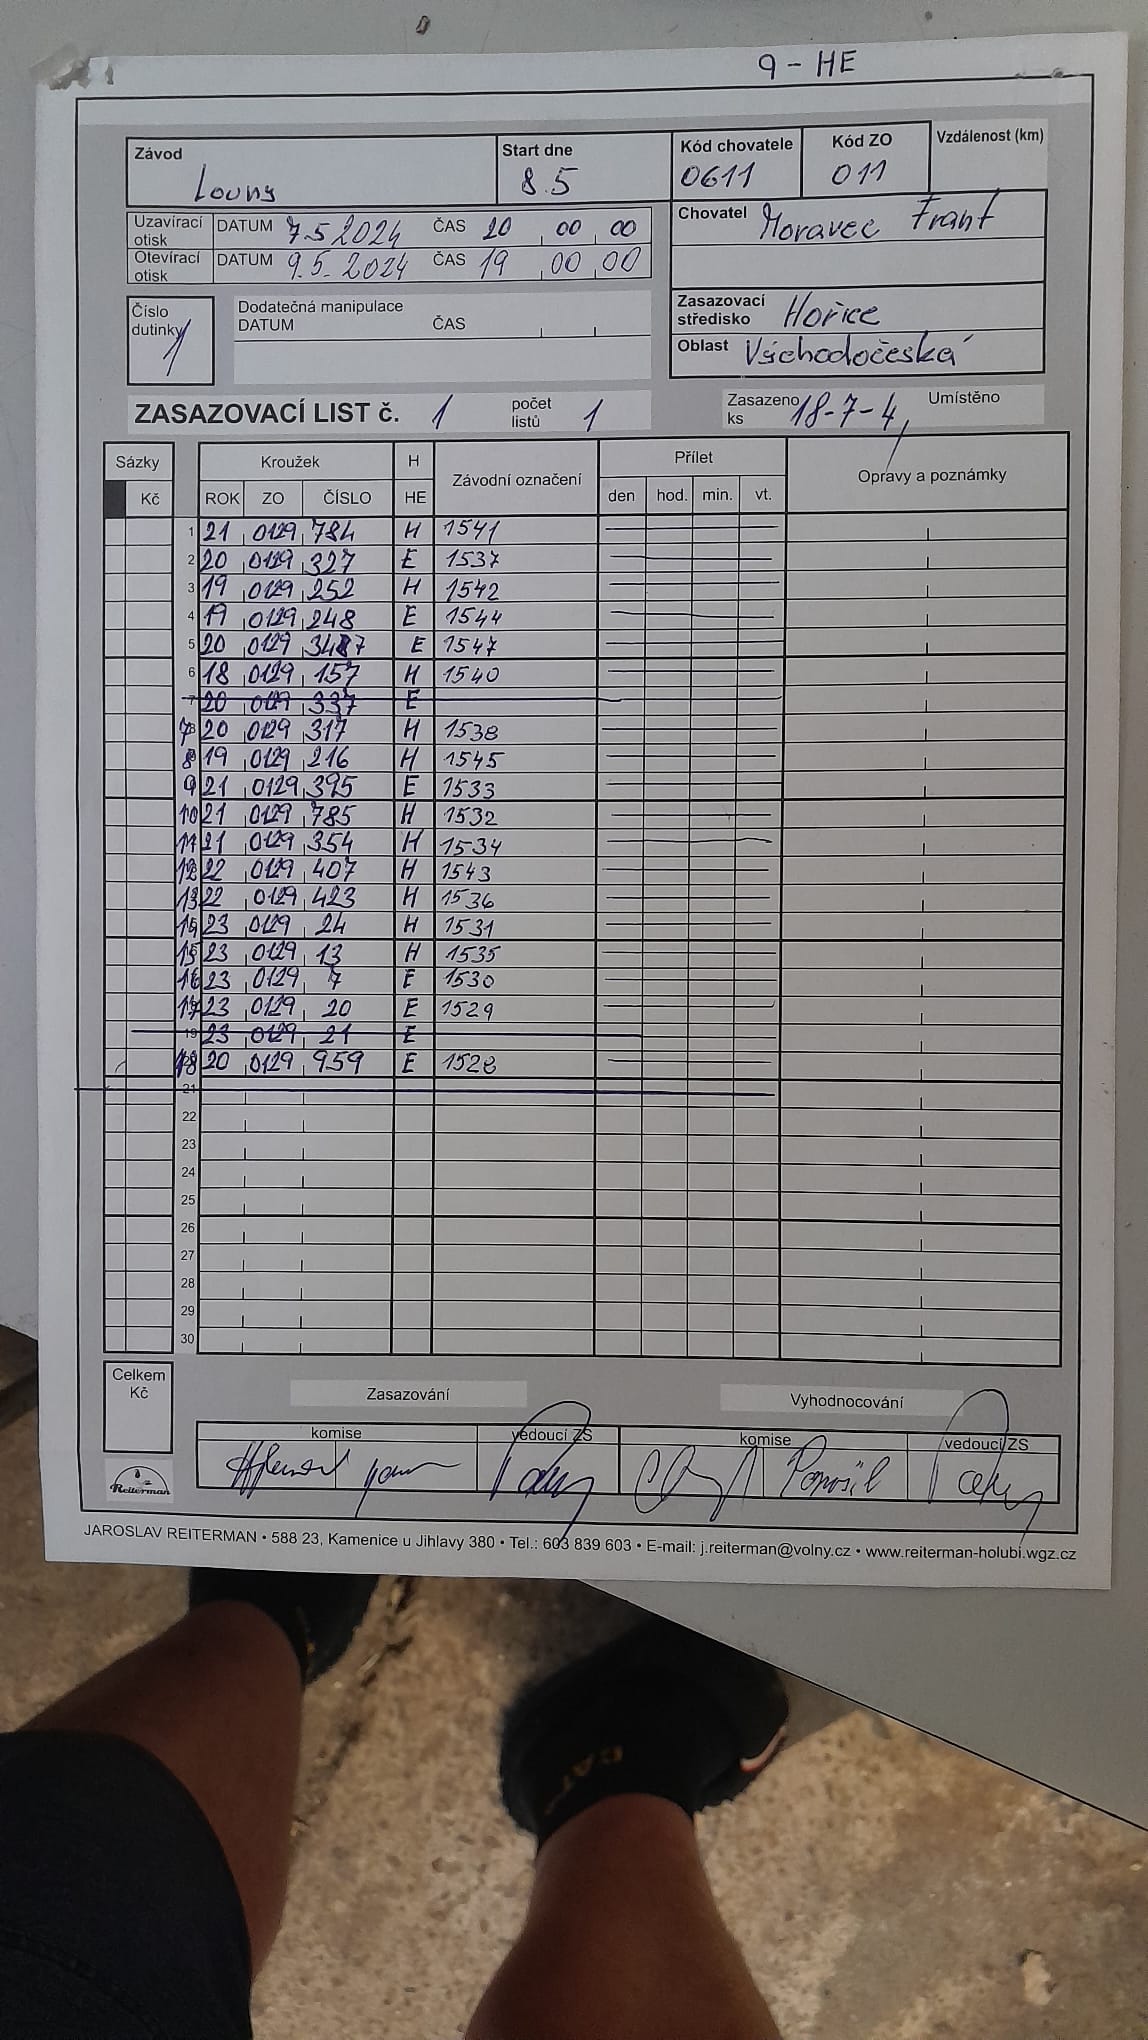 9 - HE
Závod Louny
Start dne 8.5
Kód chovatele 0611
Kód ZO 011
Vzdálenost (km)
Uzavírací otisk DATUM 7.5 2024 ČAS 20 00 00
Otevírací otisk DATUM 9.5. 2024 ČAS 19 00 00
Chovatel Moravec Frant
Číslo dutinky 1
Dodatečná manipulace
DATUM ČAS
Zasazovací středisko Hořice
Oblast Východočeská
ZASAZOVACÍ LIST č. 1 počet listů 1
Zasazeno ks 18-7-4,
Umístěno
Sázky Kroužek H Závodní označení Přílet Opravy a poznámky
Kč ROK ZO ČÍSLO HE den hod. min. vt.
1 21 0129 784 H 1541
2 20 0129 327 E 1537
3 19 0129 252 H 1542
4 19 0129 248 E 1544
5 20 0129 E 1547
6 18 0129 157 H 1540
7 20 0129 337 E
7 20 0129 317 H 1538
8 19 0129 216 H 1545
9 21 0129 395 E 1533
10 21 0129 785 H 1532
11 21 0129 354 H 1534
12 22 0129 407 H 1543
13 22 0129 423 H 1536
23 0129 24 H 1531
15 23 0129 13 H 1535
16 23 0129 7 E 1530
17 23 0129 20 E 1529
19 23 0129 21 E
18 20 0129 959 E 1528
21
22
23
24
25
26
27
28
29
30
Celkem Kč
Zasazování Vyhodnocování
komise vedoucí ZS komise vedoucí ZS
Pospíšil
Reiterman
JAROSLAV REITERMAN • 588 23, Kamenice u Jihlavy 380 • Tel.: 603 839 603 • E-mail: j.reiterman@volny.cz • www.reiterman-holubi.wgz.cz